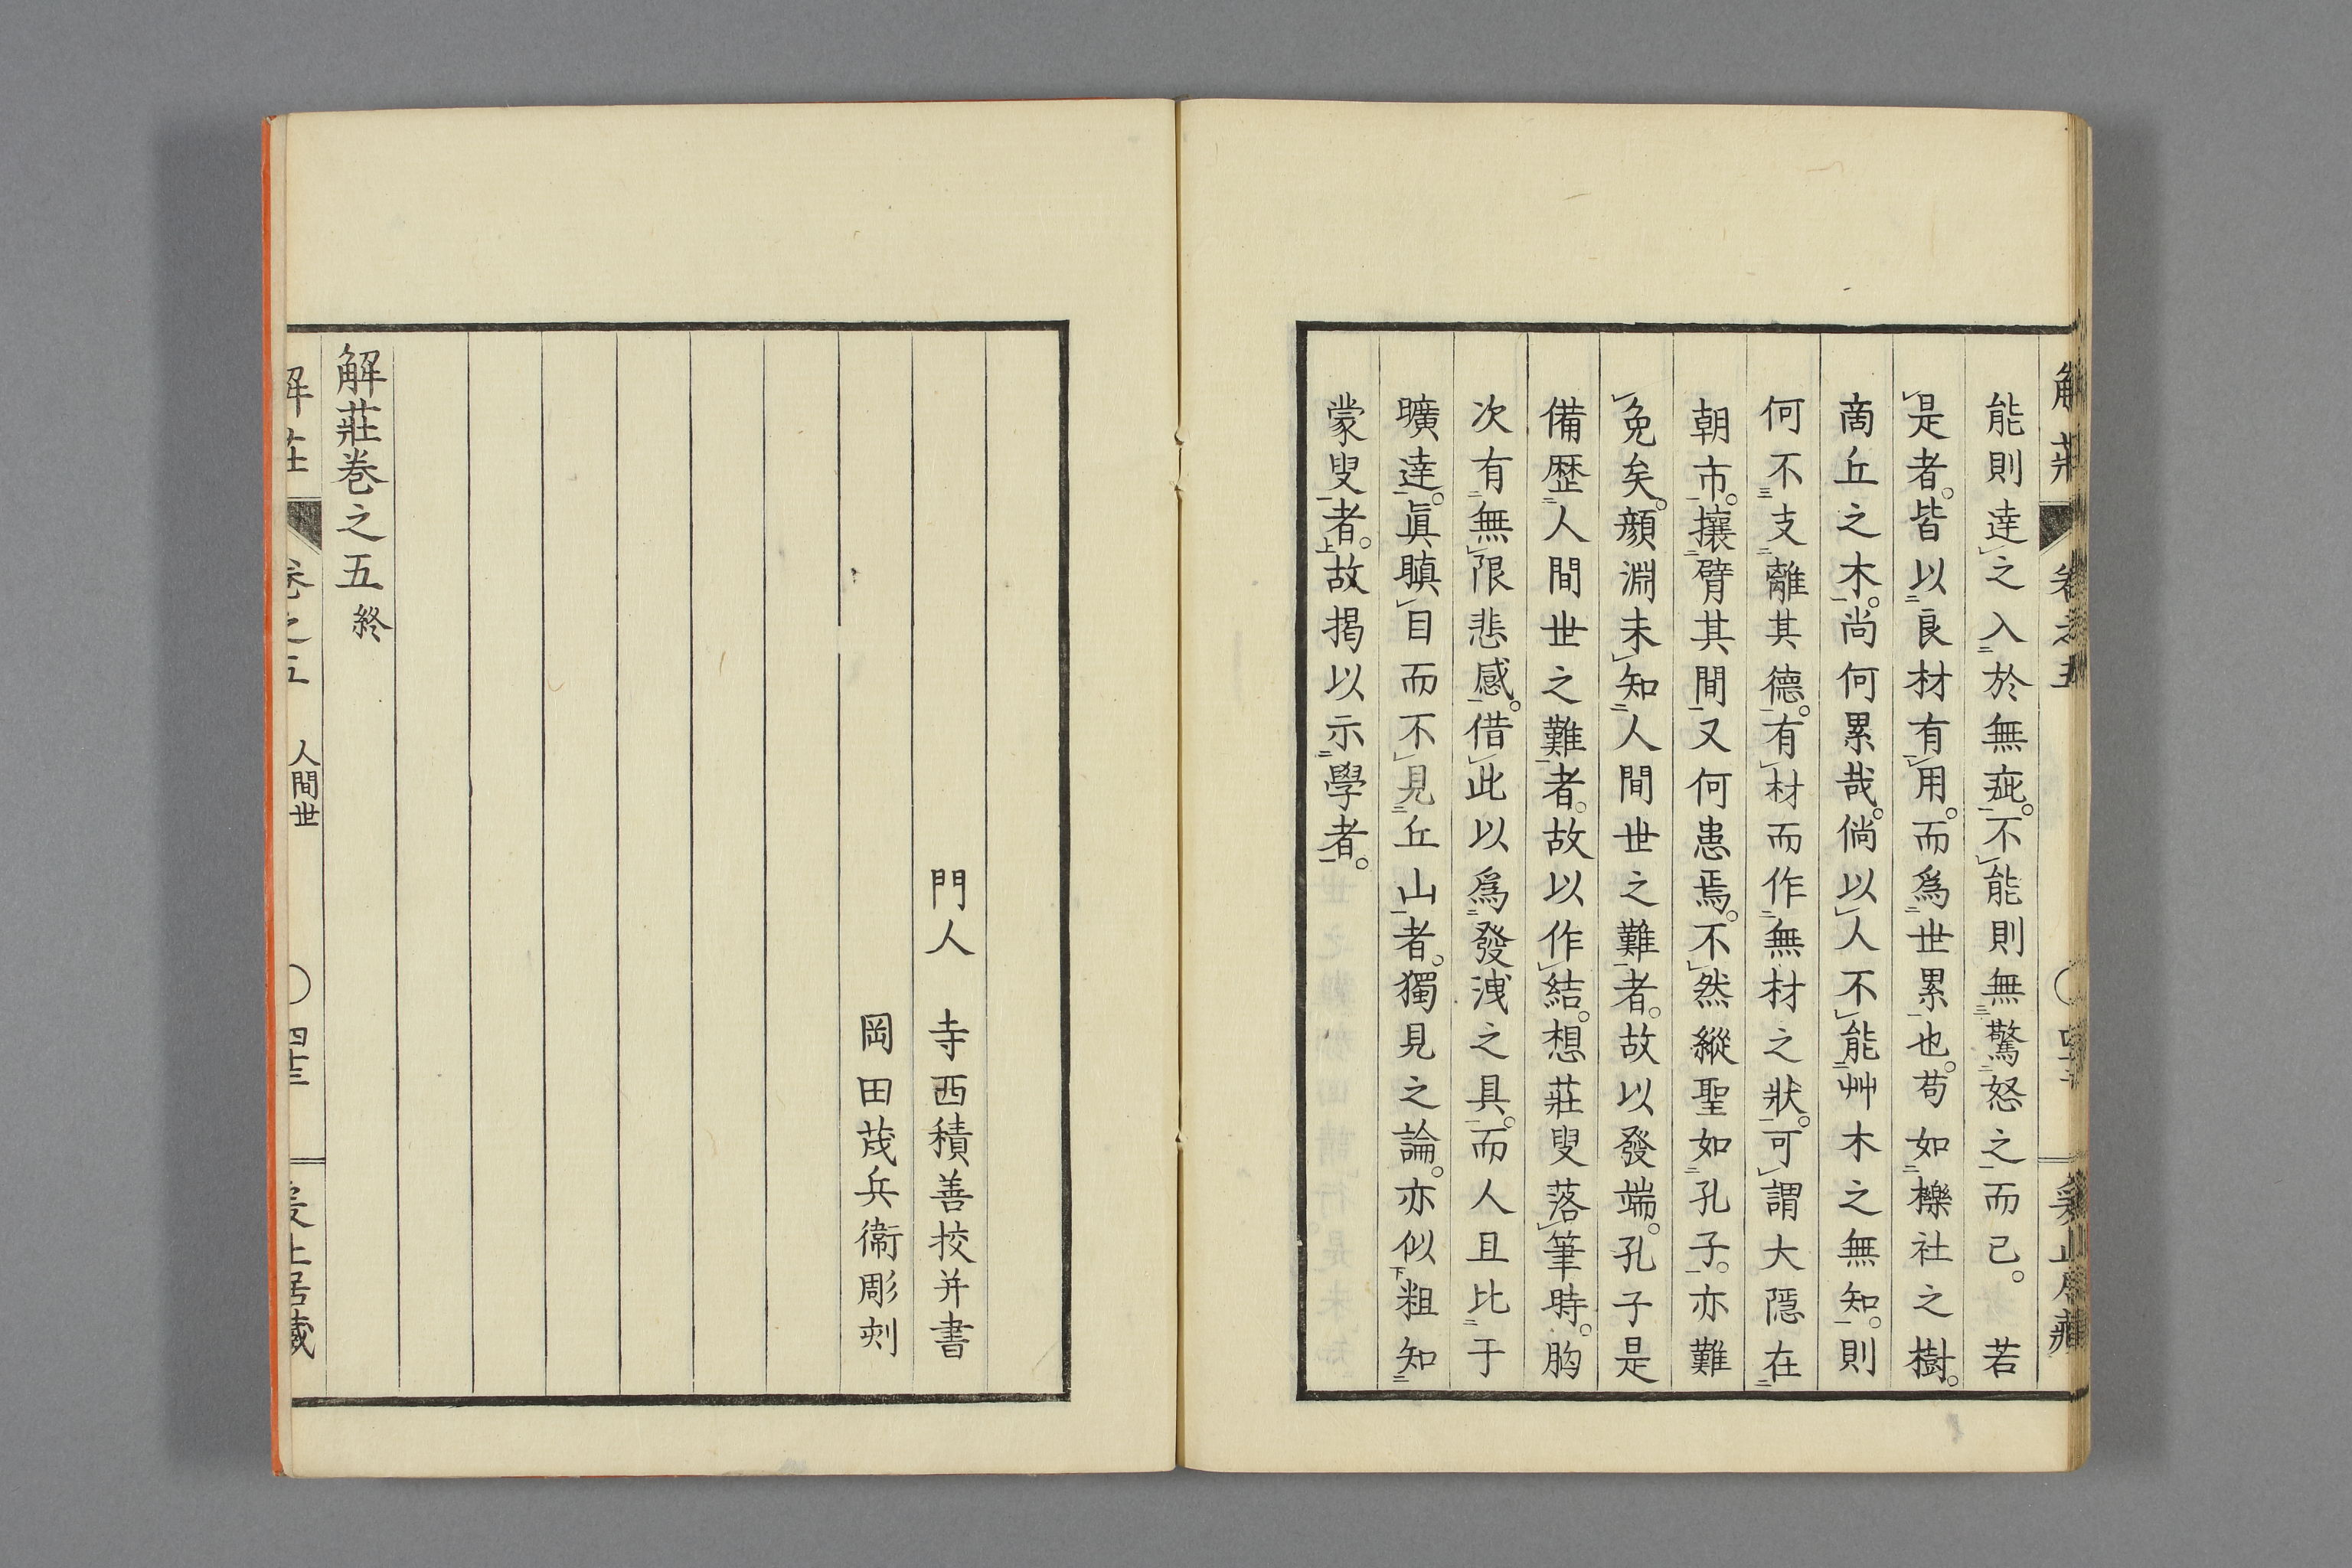 能則達㆑之入㆓於無疵㆒。不㆑能則無㆔驚㆓怒之㆒而已。若
㆑是者。皆以㆓良材有㆒㆑用。而爲㆓世累㆒也。苟如㆓櫟社之樹。
商丘之木㆒。尚何累哉。倘以㆑人不㆑能㆓艸木之無知㆒。則
何不㆔支㆓離其德㆒。有㆑材而作㆓無材之狀㆒。可㆑謂大隱在㆓
朝市㆒。攘㆓臂其間㆒又何患焉。不㆑然縱聖如㆓孔子㆒。亦難
㆑免矣。顏淵未㆑知㆓人間世之難㆒者。故以發端。孔子是
備歷㆓人間世之難㆒者。故以作㆑結。想莊叟落㆑筆時。胸
次有㆓無㆑限悲感㆒。借㆑此以爲㆓發洩之具㆒。而人且比㆓于
曠達㆒。眞瞋㆑目而不㆑見㆓丘山㆒者。獨見之論。亦似㆘粗知㆓
蒙叟㆒者㆖。故揭以示㆓學者㆒。
門人　寺西積善挍并書
岡田茂兵衞彫刻
解莊巻之五　終
人間世